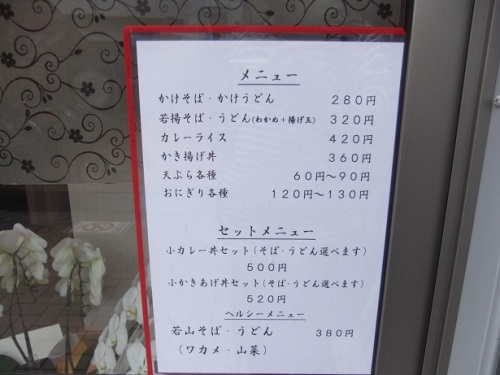 メニュー
かけそば・かけうどん 280円
若揚そば・うどん(わかめ+揚げ玉) 320円
カレーライス 420円
かき揚げ丼 360円
天ぷら各種 60円~90円
おにぎり各種 120円~130円
セットメニュー
小カレー丼セット(そば・うどん選べます)
500円
小かきあげ丼セット(そば・うどん選べます)
520円
ヘルシーメニュー
若山そば・うどん 380円
(ワカメ・山菜)